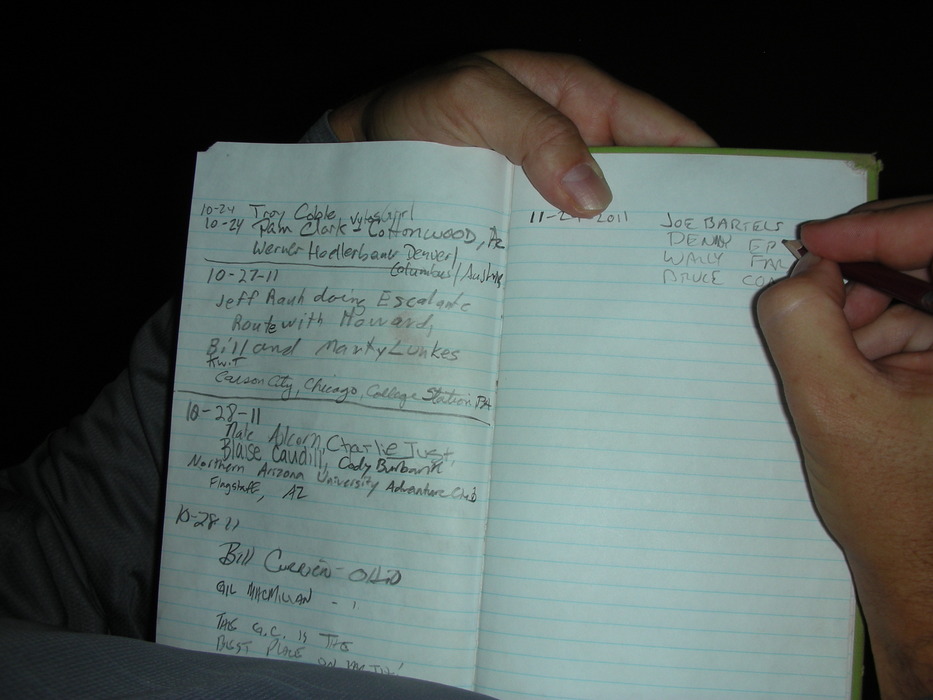 10-24 Troy Coble
10-24 Pam Clark - Cottonwood, AZ
Werner Hoellerbauer Denver/
Columbus/Austria
10-27-11
Jeff Rauh doing Escalante
Route with Howard,
Bill and Marty Lunkes
Carson City, Chicago, College Station
10-28-11
Nate Alcorn, Charlie Just,
Blaise Caudill, Cody Burbank
Northern Arizona University Adventure Club
Flagstaff, AZ
10-28-11
Bill Currien - OHIO
GIL MACMILLAN - "
THE G.C. IS THE
BEST PLACE ON EARTH!
2011
JOE BARTELS
DENNY EP
WALLY FAR
BRUCE CO